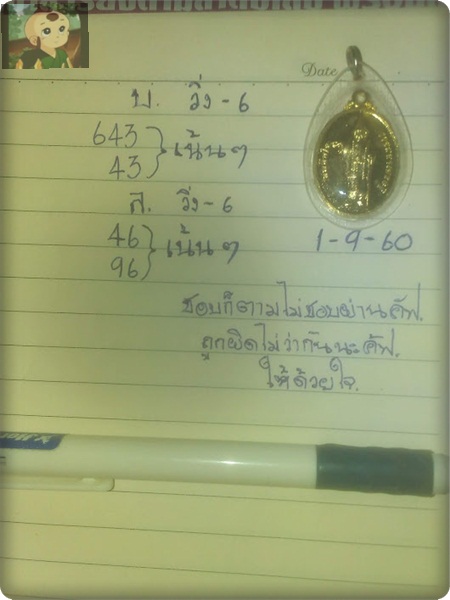 Date
บ. วิ่ง - 6
643
43
เน้นๆ
ล. วิ่ง - 6
46
96
เน้นๆ
1-9-60
ชอบก็ตามไม่ชอบผ่านคัฟ.
ถูกผิดไม่ว่ากันนะคัฟ.
ให้ด้วยใจ.